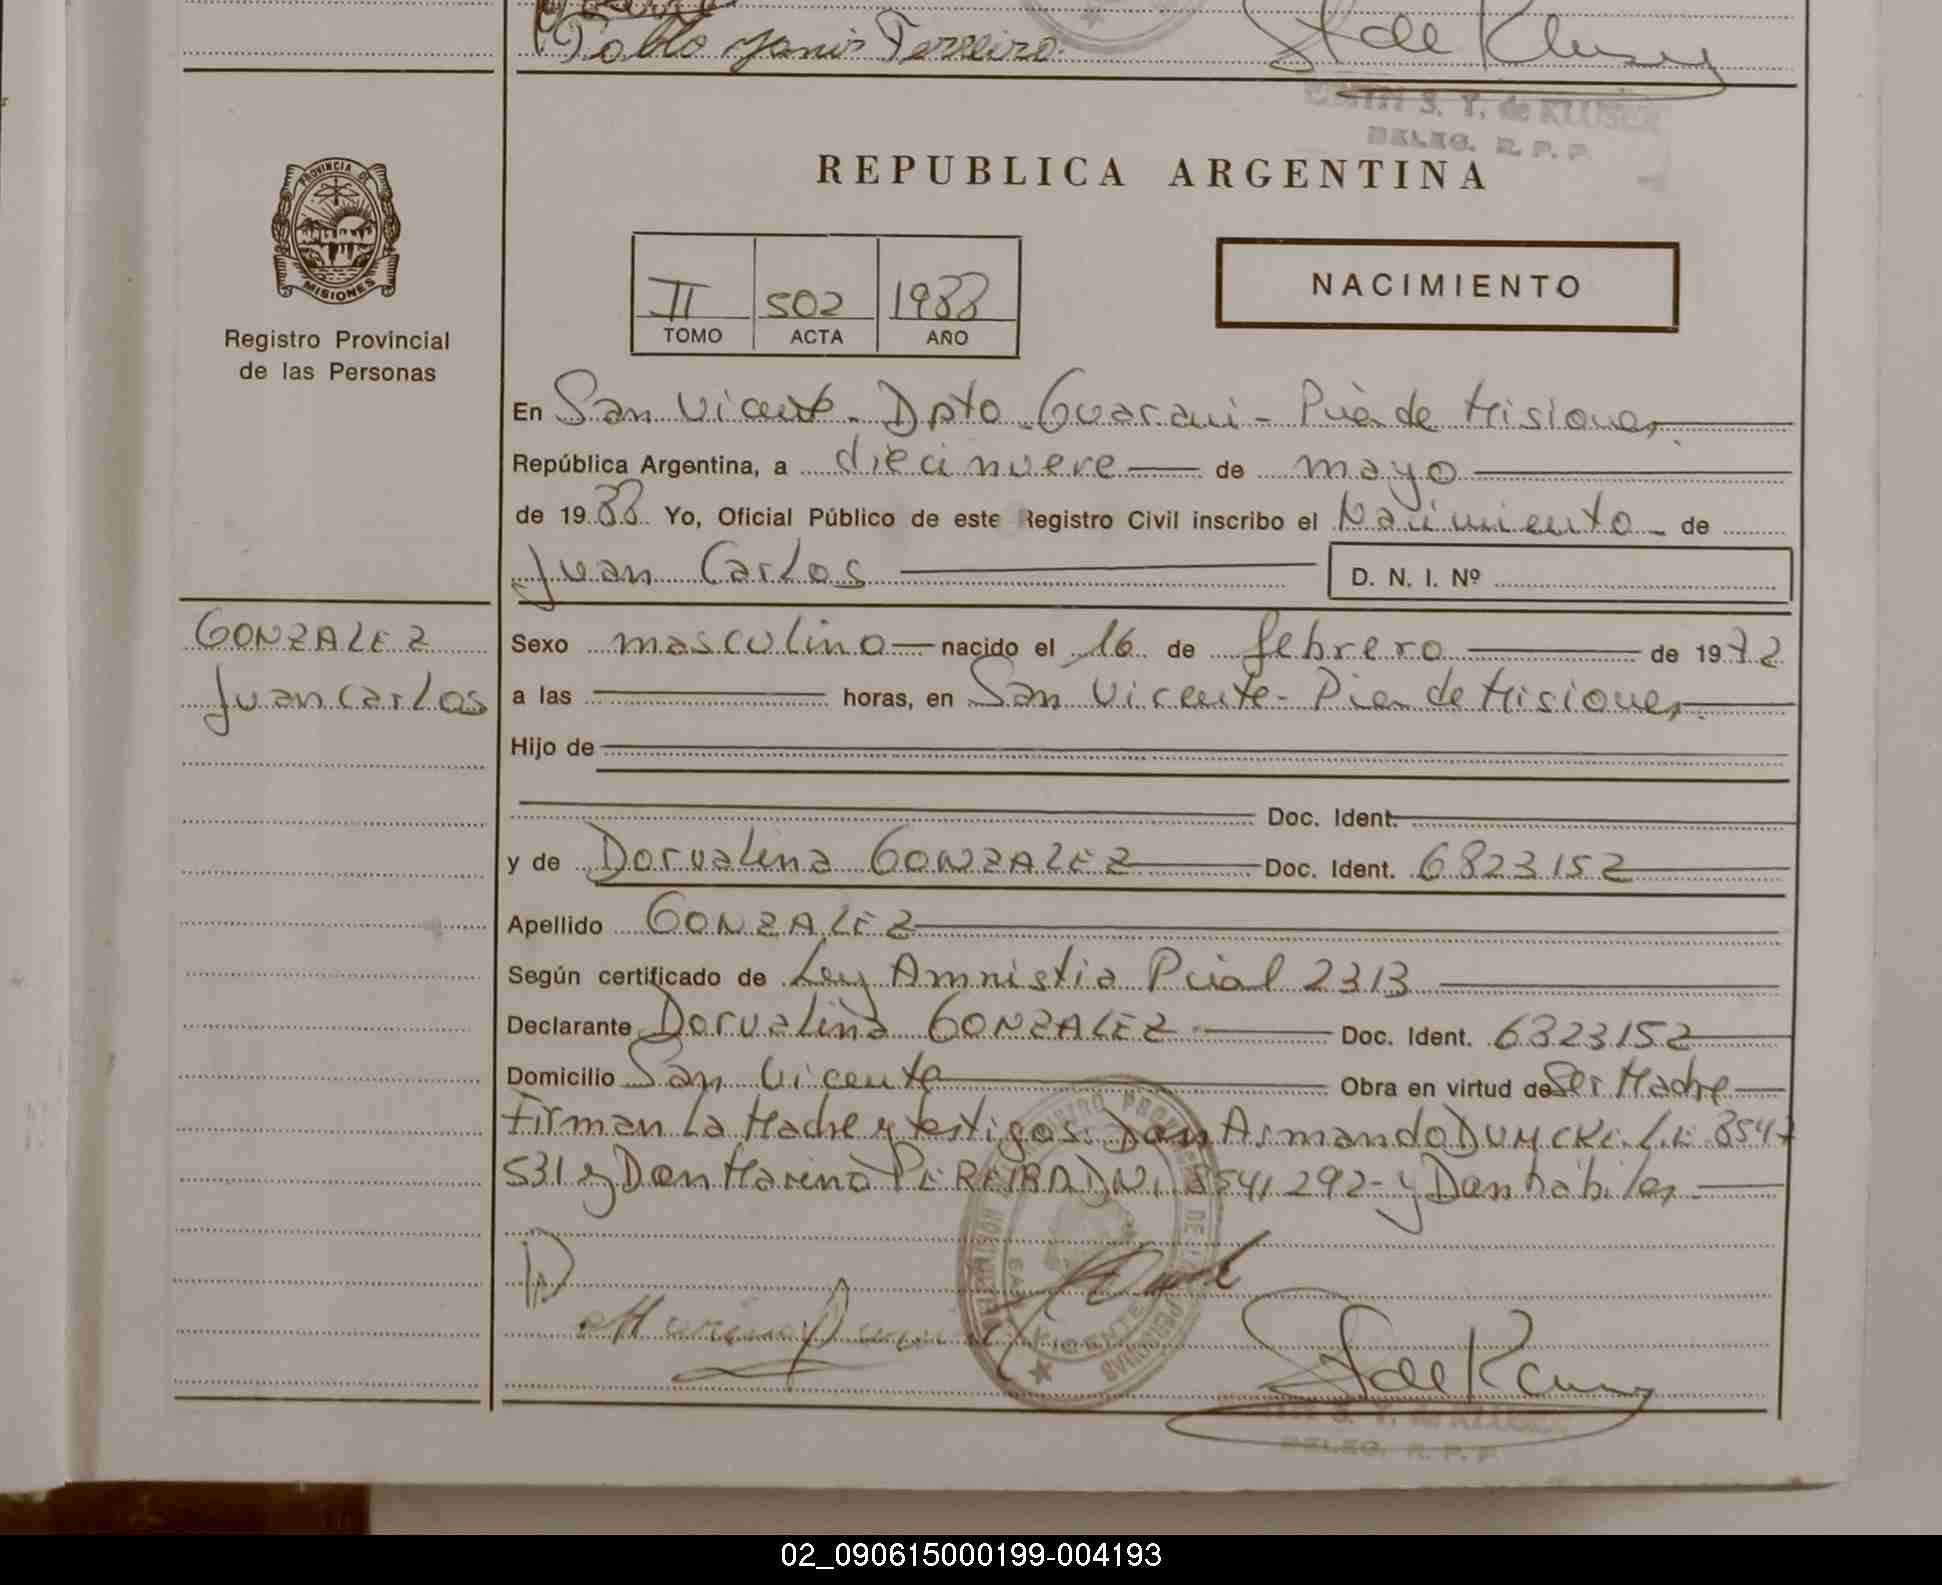 Pablo Janis Ferreira
S de Kluse
S. Y. de KLUSE
DELEG. R. P. P.
PROVINCIA DE
MISIONES
Registro Provincial
de las Personas
REPUBLICA ARGENTINA
II 502 1988
TOMO ACTA AÑO
NACIMIENTO
En San Vicente - Dpto Guarani - Pcia de Misiones
República Argentina, a diecinueve de mayo
de 1988 Yo, Oficial Público de este Registro Civil inscribo el Nacimiento de
Juan Carlos D. N. I. Nº
GONZALEZ
Juan Carlos
Sexo masculino nacido el 16 de febrero de 1972
a las horas, en San Vicente - Pcia de Misiones
Hijo de
Doc. Ident.
y de Dorvalina GONZALEZ Doc. Ident. 6823152
Apellido GONZALEZ
Según certificado de Ley Amnistia Pcial 2313
Declarante Dorvalina GONZALEZ Doc. Ident. 6823152
Domicilio San Vicente Obra en virtud de Ser Madre
Firman la Madre y testigos: Don Armando DUMCKE L.E 8547
531 y Don Marino PEREIRA DNI 8541292 - y Dan habiles
VICENTE
S de Kluse
S. Y. de KLUSE
DELEG. R. P. P
02_090615000199-004193